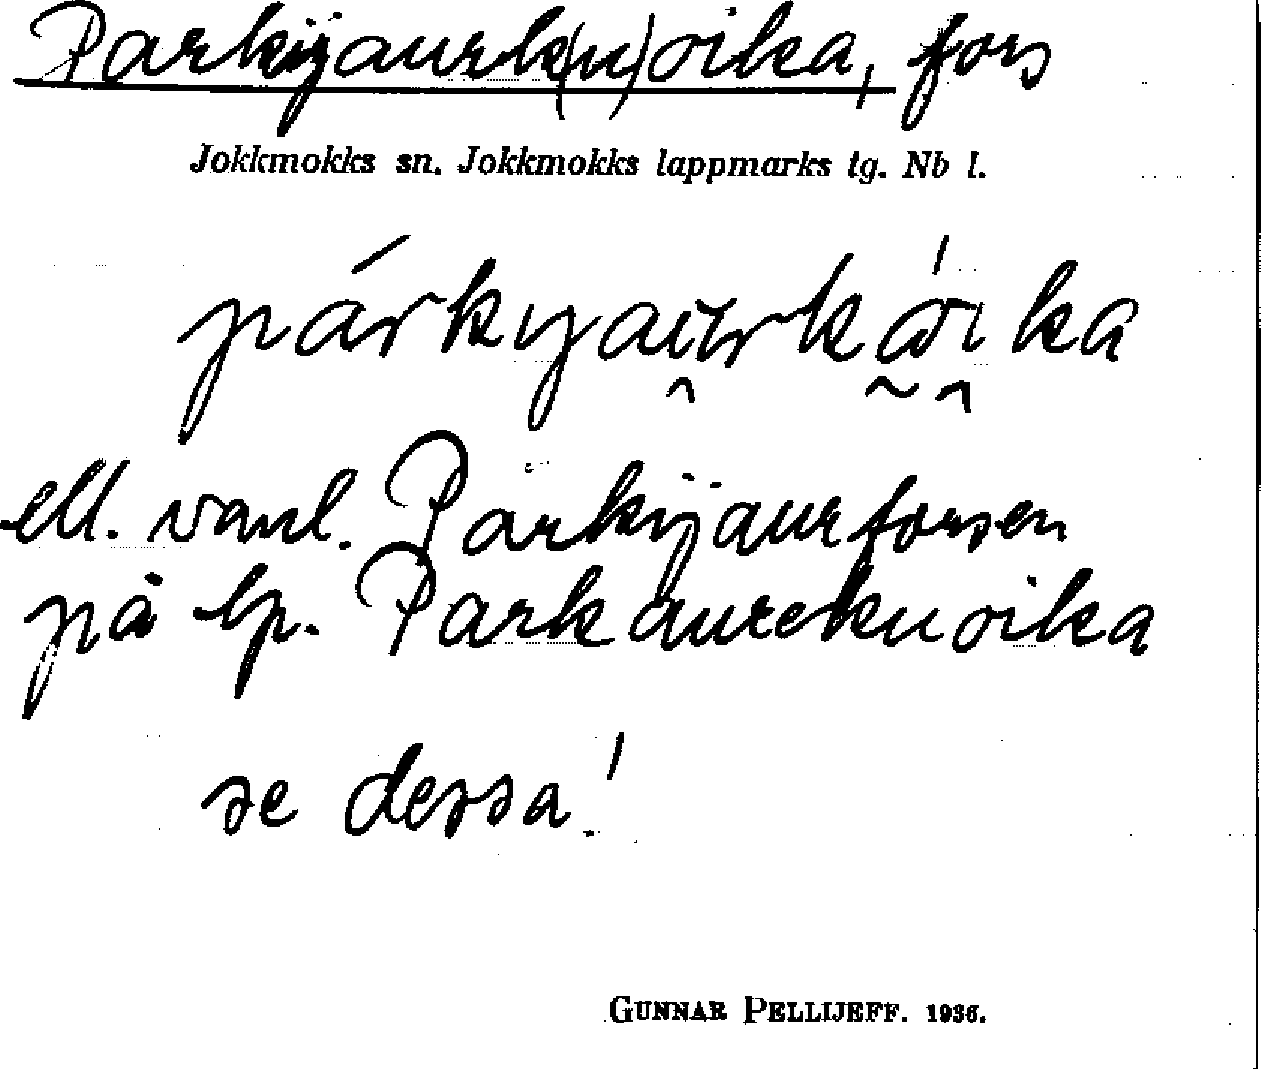 Parkijaurk(u)oika, fors
Jokkmokks sn. Jokkmokks lappmarks tg. Nb l.
ell. vanl. Parkijaurforsen
på lp. Parkaurekuoika
se dessa!
GUNNAR PELLIJEFF. 1936.